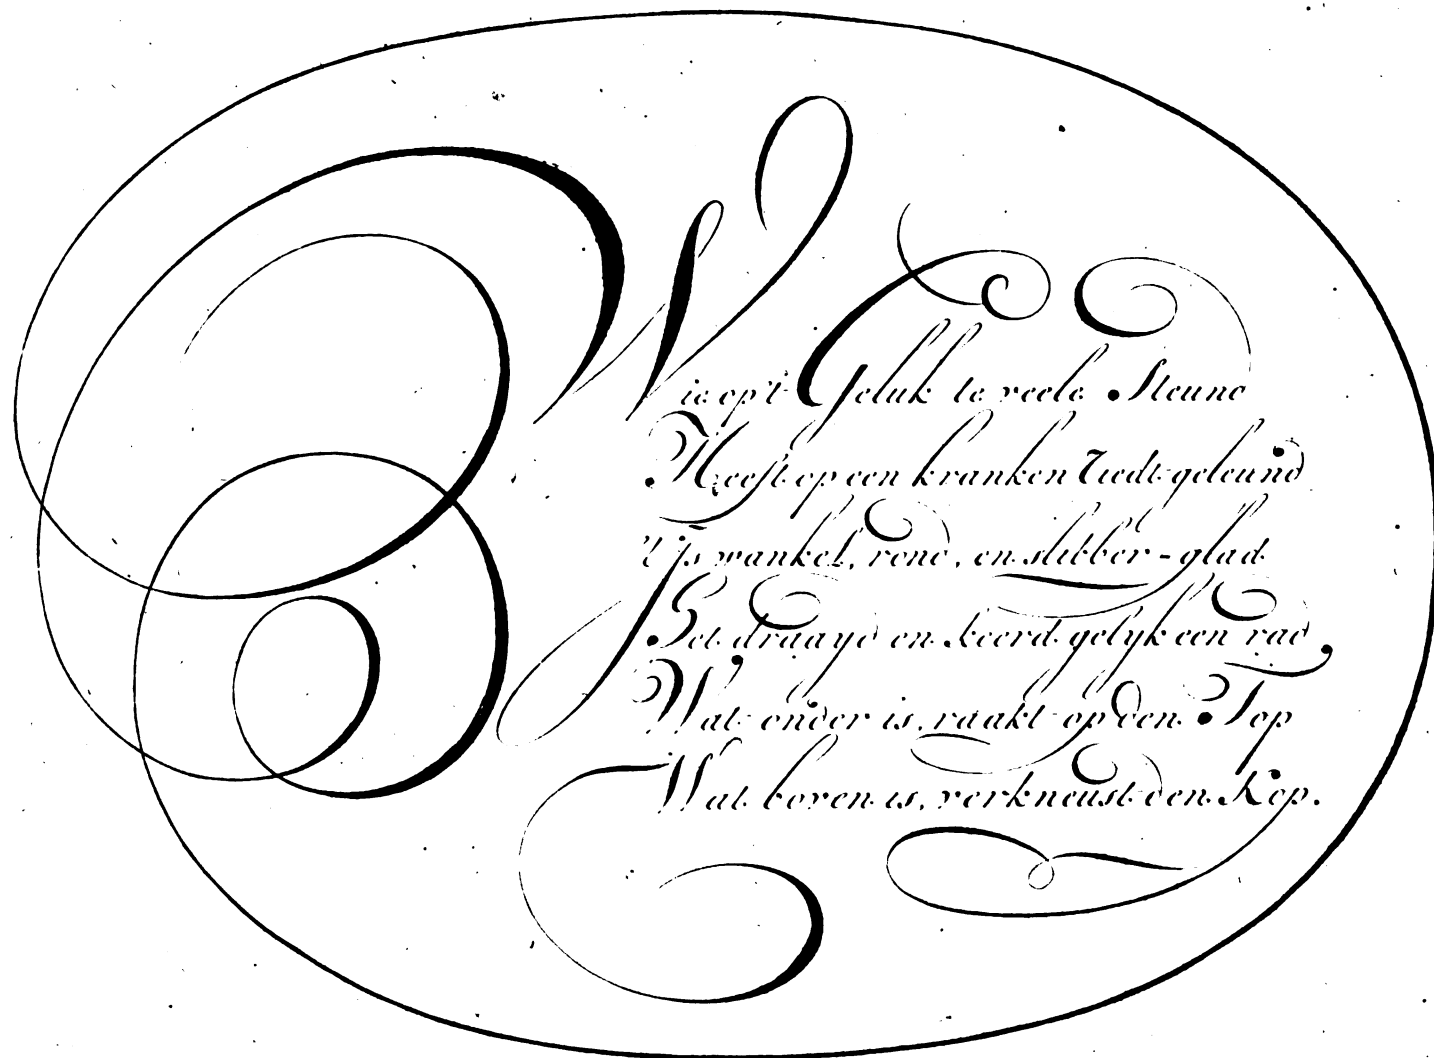 Wie op't Geluk te veele Steund
Heeft op een kranken Riedt geleund
't Is wankel, rond, en slibber-glad
Het draayd en keerd gelyk een rad,
Wat onder is, raakt op den Top
Wat boven is, verkneust den Kop.